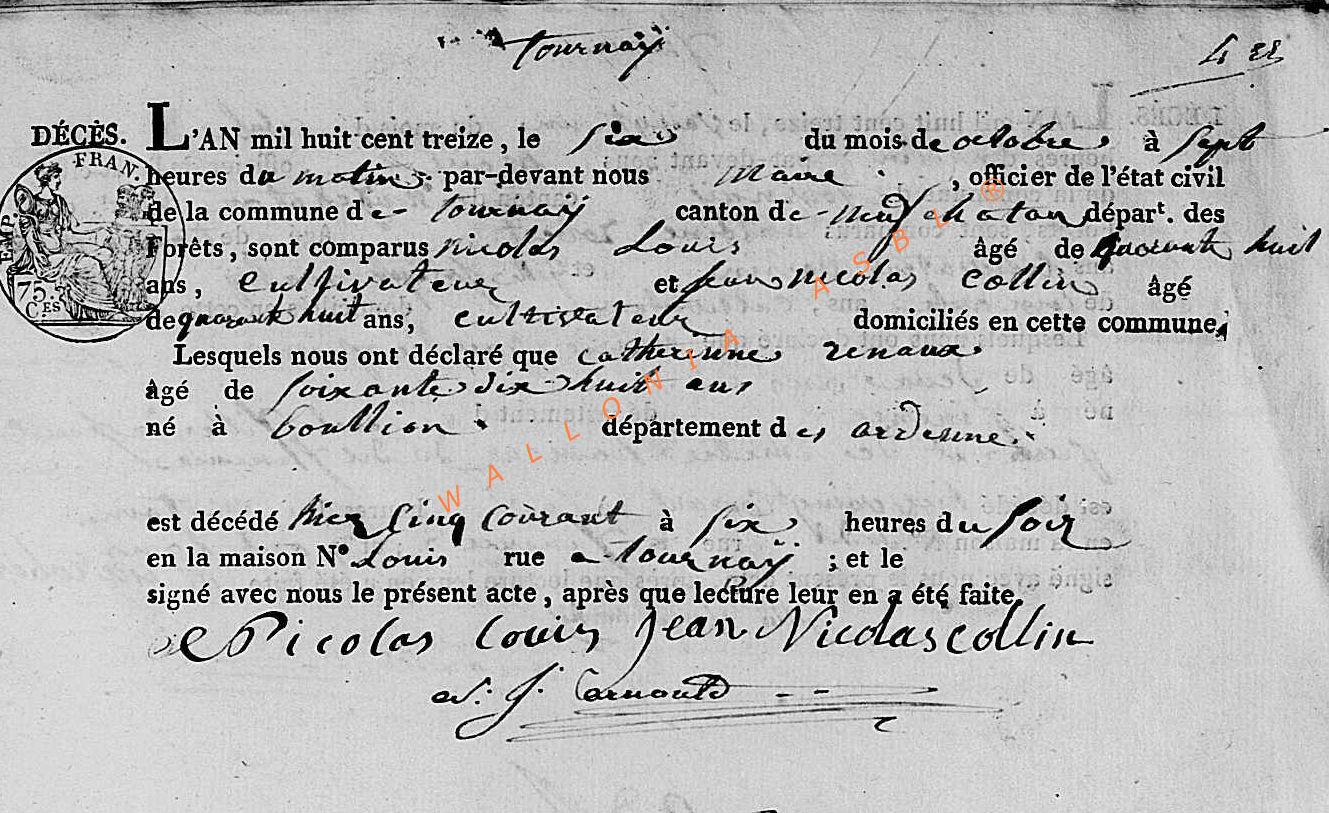 tournaÿ
DÉCÈS. L'AN mil huit cent treize, le six du mois de octobre à sept
heures du matin par-devant nous maire, officier de l'état civil
de la commune de tournaÿ canton de neufchatau départ. des
Forêts, sont comparus nicolas Louis âgé de quarante huit
ans, cultivateur et jean nicolas collin âgé
de quarante huit ans, cultivateur domiciliés en cette commune,
Lesquels nous ont déclaré que catherinne renaux
âgé de soixante dix huit ans
né à boullion département des ardenne.
est décédé hier cinq courant à six heures du soir
en la maison N° Louis rue a tournaÿ ; et le
signé avec nous le présent acte, après que lecture leur en a été faite.
Nicolas Louis Jean Nicolas collin
FRAN.
EMP.
75
CES
WALLONIA ASBL ®